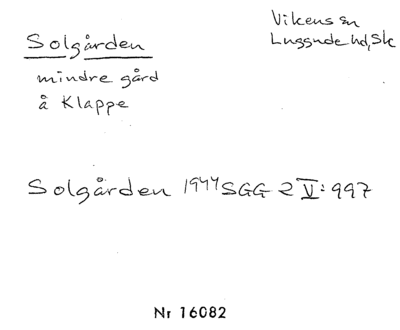 Solgården
Vikens sn
Luggude hd, Sk
mindre gård
å Klappe
Solgården 1944 SGG 2 V: 997
Nr 16082